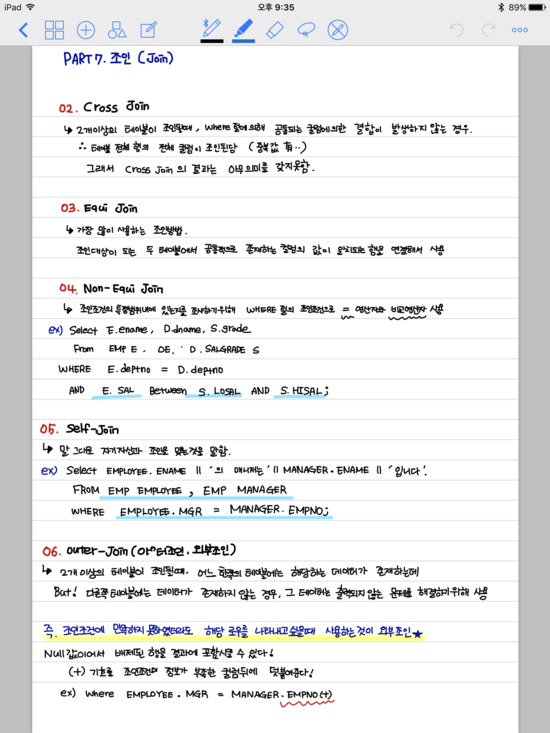 iPad 오후 9:35 89%
PART 7. 조인 (Join)
02. Cross Join
↳ 2개이상의 테이블이 조인될때, Where 절에 의해 공통되는 컬럼에의한 결합이 발생하지 않는 경우.
∴ 테이블 전체 행의 전체 컬럼이 조인된당 (중복값 有..)
그래서 Cross Join 의 결과는 아무의미를 갖지못함.
03. Equi Join
↳ 가장 많이 사용하는 조인방법.
조인대상이 되는 두 테이블에서 공통적으로 존재하는 컬럼의 값이 일치되는 행을 연결해서 사용
04. Non-Equi Join
↳ 조인조건의 특정범위내에 있는지를 조사하기위해 WHERE 절의 조인조건으로 = 연산자와 비교연산자 사용
ex) Select E.ename, D.dname, S.grade
From EMP E, DE. D. SALGRADE S
WHERE E.deptno = D.deptno
AND E. SAL Between S. LOSAL AND S. HISAL;
05. Self-Join
↳ 말 그대로 자기자신과 조인을 맺는것을 말함.
ex) Select EMPLOYEE. ENAME || '의 매니저는' || MANAGER. ENAME || '입니다'.
FROM EMP EMPLOYEE, EMP MANAGER
WHERE EMPLOYEE. MGR = MANAGER. EMPNO;
06. outer-Join (아우터조인, 외부조인)
↳ 2개 이상의 테이블이 조인될때, 어느 한쪽의 테이블에는 해당하는 데이터가 존재하는데
But! 다른쪽 테이블에는 데이터가 존재하지 않는 경우, 그 데이터는 출력되지 않는 문제를 해결하기위해 사용
즉, 조인조건에 만족하지 못하였더라도 해당 로우를 나타내고 싶을때 사용하는것이 외부조인★
Null값이어서 배제된 행을 결과에 포함시킬 수 있다!
(+) 기호를 조인조건에 정보가 부족한 컬럼뒤에 덧붙여준다!
ex) Where EMPLOYEE. MGR = MANAGER. EMPNO(+)